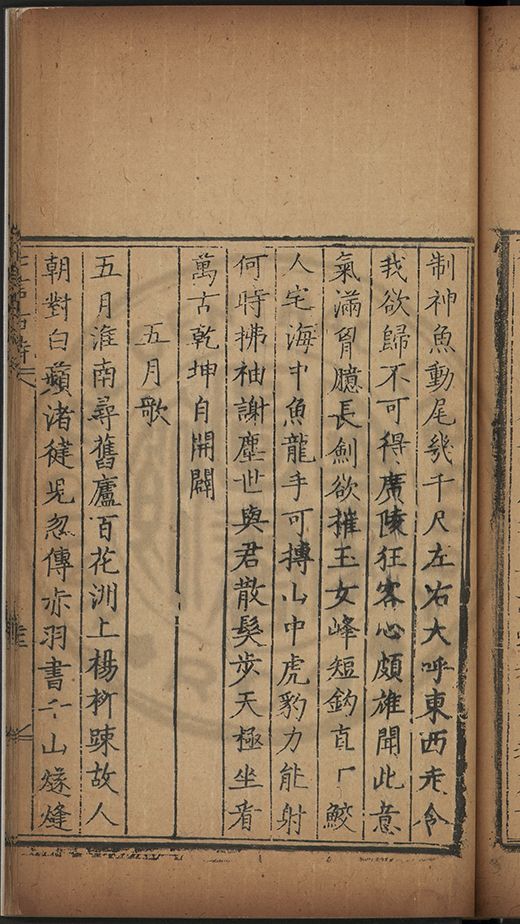 制神魚動尾幾千尺左右大呼東西走令
我欲歸不可得廣陵狂客心頗雄聞此意
氣滿胷臆長劍欲摧玉女峰短鈎直 鮫
人宅海中魚龍手可摶山中虎豹力能射
何時拂袖謝塵世與君散髮步天極坐看
萬古乾坤自開闢
五月歌
五月淮南尋舊廬百花洲上楊柳踈故人
朝對白蘋渚健兒忽傳赤羽書千山燧烽